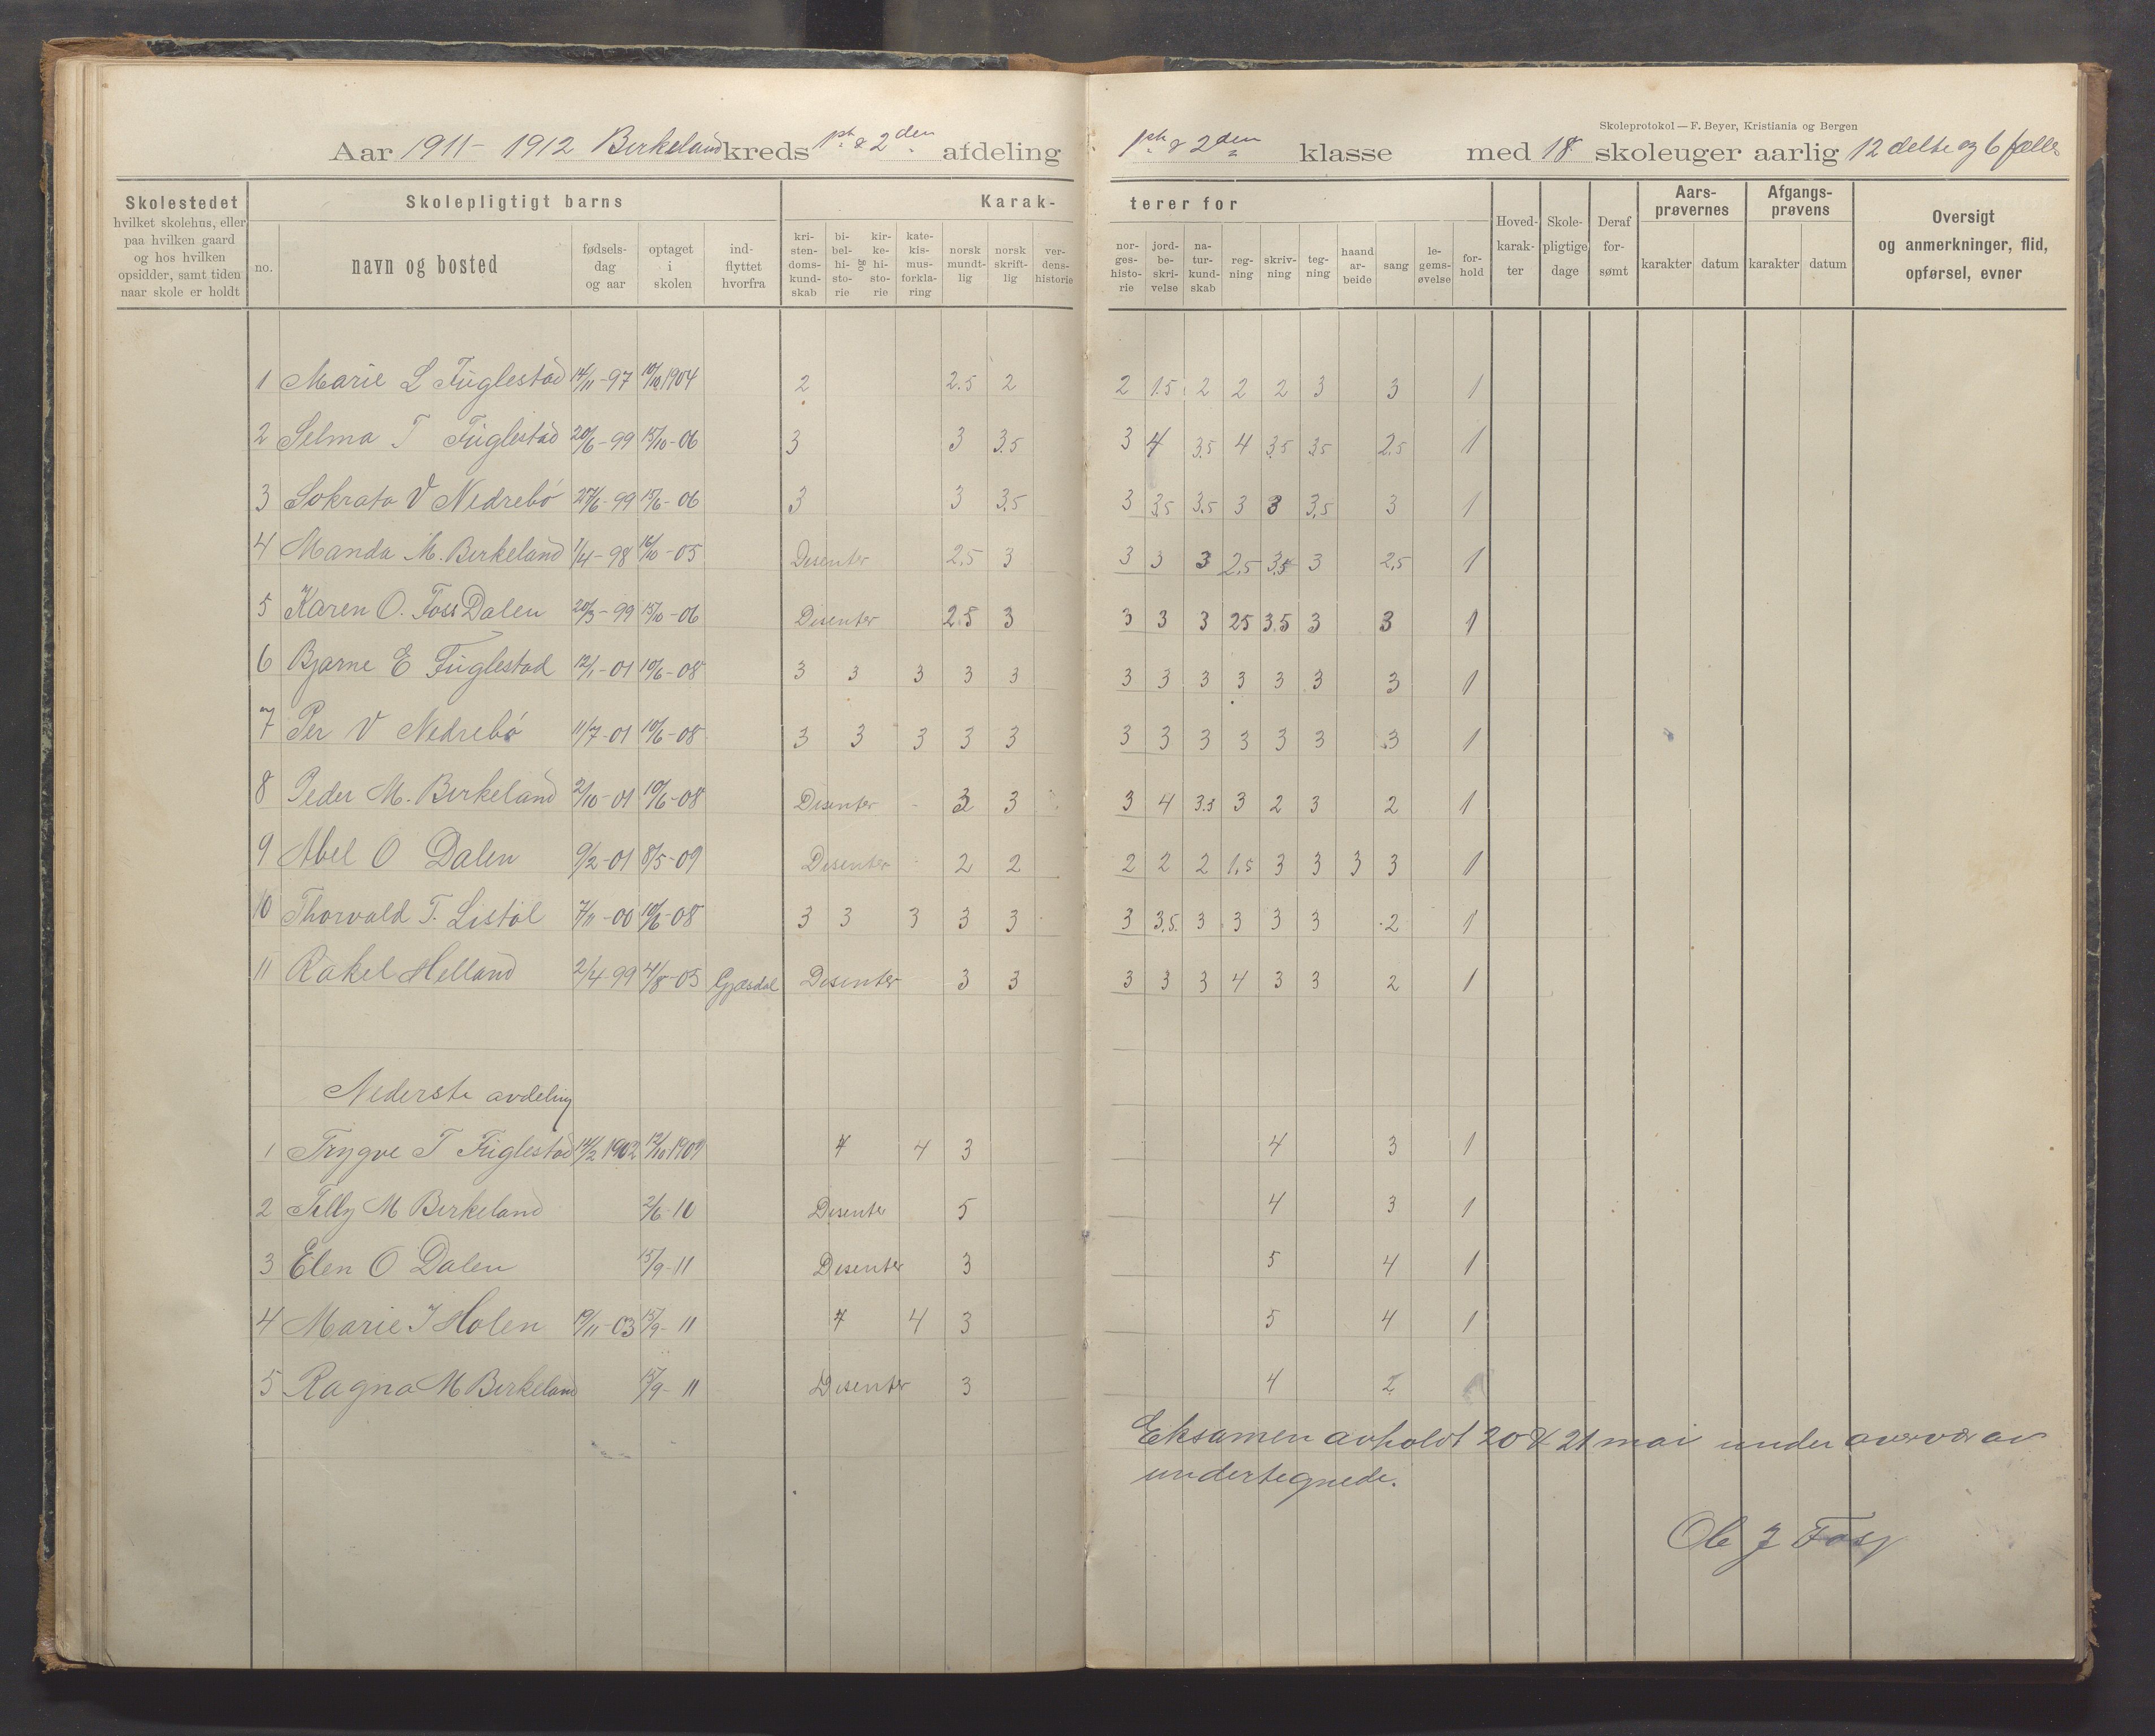 Skoleprotokol — F. Beyer, Kristiania og Bergen
Aar 1911 - 1912 Birkeland kreds 1ste & 2den afdeling 1ste & 2den klasse med 18 skoleuger aarlig 12 delte og 6 fælles
Skolestedet
hvilket skolehus, eller
paa hvilken gaard
og hos hvilken
opsidder, samt tiden
naar skole er holdt
Skolepligtigt barns
no.
navn og bosted
fødsels-
dag
og aar
optaget
i
skolen
ind-
flyttet
hvorfra
Karak-
kri-
sten-
doms-
kund-
skab
bi-
bel-
hi-
sto-
rie
og
kir-
ke-
hi-
sto-
rie
kate-
kis-
mus-
forkla-
ring
norsk
mundt-
lig
norsk
skrift-
lig
ver-
dens-
historie
terer for
nor-
ges-
histo-
rie
jord-
be-
skri-
velse
na-
tur-
kund-
skab
reg-
ning
skriv-
ning
teg-
ning
haand
ar-
beide
sang
le-
gems-
øvelse
for-
hold
Hoved-
karak-
ter
Skole-
pligtige
dage
Deraf
for-
sømt
Aars-
prøvernes
karakter datum
Afgangs-
prøvens
karakter datum
Oversigt
og anmerkninger, flid,
opførsel, evner
1 Marie L Fuglestad 14/11-97 10/10 1904 2 2.5 2 2 1.5 2 2 2 3 3 1
2 Selma T Fuglestad 20/6-99 15/10-06 3 3 3.5 3 4 3.5 4 3.5 3.5 2.5 1
3 Sokrata V Nedrebö 27/6-99 15/6-06 3 3 3.5 3 3.5 3.5 3 3 3.5 3 1
4 Manda M. Birkeland 1/4-98 16/10-05 Disenter 2.5 3 3 3 3 2.5 3.5 3 2.5 1
5 Karen O. Foss Dalen 20/3-99 15/10-06 Disenter 2.5 3 3 3 3 25 3.5 3 3 1
6 Bjarne E Fuglestad 12/1-01 10/6-08 3 3 3 3 3 3 3 3 3 3 3 3 1
7 Per V Nedrebö 11/7-01 10/6-08 3 3 3 3 3 3 3 3 3 3 3 3 1
8 Peder M. Birkeland 2/10-01 10/6-08 Disenter - 3 3 3 4 3.5 3 2 3 2 1
9 Abel O Dalen 9/2-01 8/5-09 Disenter 2 2 2 2 2 1,5 3 3 3 3 1
10 Thorvald T. Listöl 7/11-00 10/6-08 3 3 3 3 3 3 3.5. 3 3 3 3 2 1
11 Rakel Helland 2/4-99 4/8-05 Gjæsdal Disenter 3 3 3 3 3 4 3 3 2 1
Nederste avdeling
1 Trygve T Fuglestad 14/2 1902 12/10 1909 4 4 3 4 3 1
2 Tilly M Birkeland 2/6-10 Disenter 5 4 3 1
3 Elen O Dalen 15/9-11 Disenter 3 5 4 1
4 Marie J Holen 19/11-03 15/9-11 4 4 3 5 4 1
5 Ragna M Birkeland 15/9-11 Disenter 3 4 2
Eksamen avholdt 20 & 21 mai under overvær av
undertegnede.
Ole J Foss